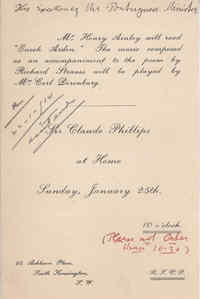 His Excellency the Portuguese Minister
Mr. Henry Ainley will read
"Enoch Arden." The music composed
as an accompaniment to the poem by
Richard Strauss will be played by
Mr. Carl Derenburg.
Sir Claude Phillips
at Home
Sunday, January 25th.
10 o'clock
(Please not
10-30)
40 Ashburn Place,
South Kensington,
S.W.
R.S.V.P.